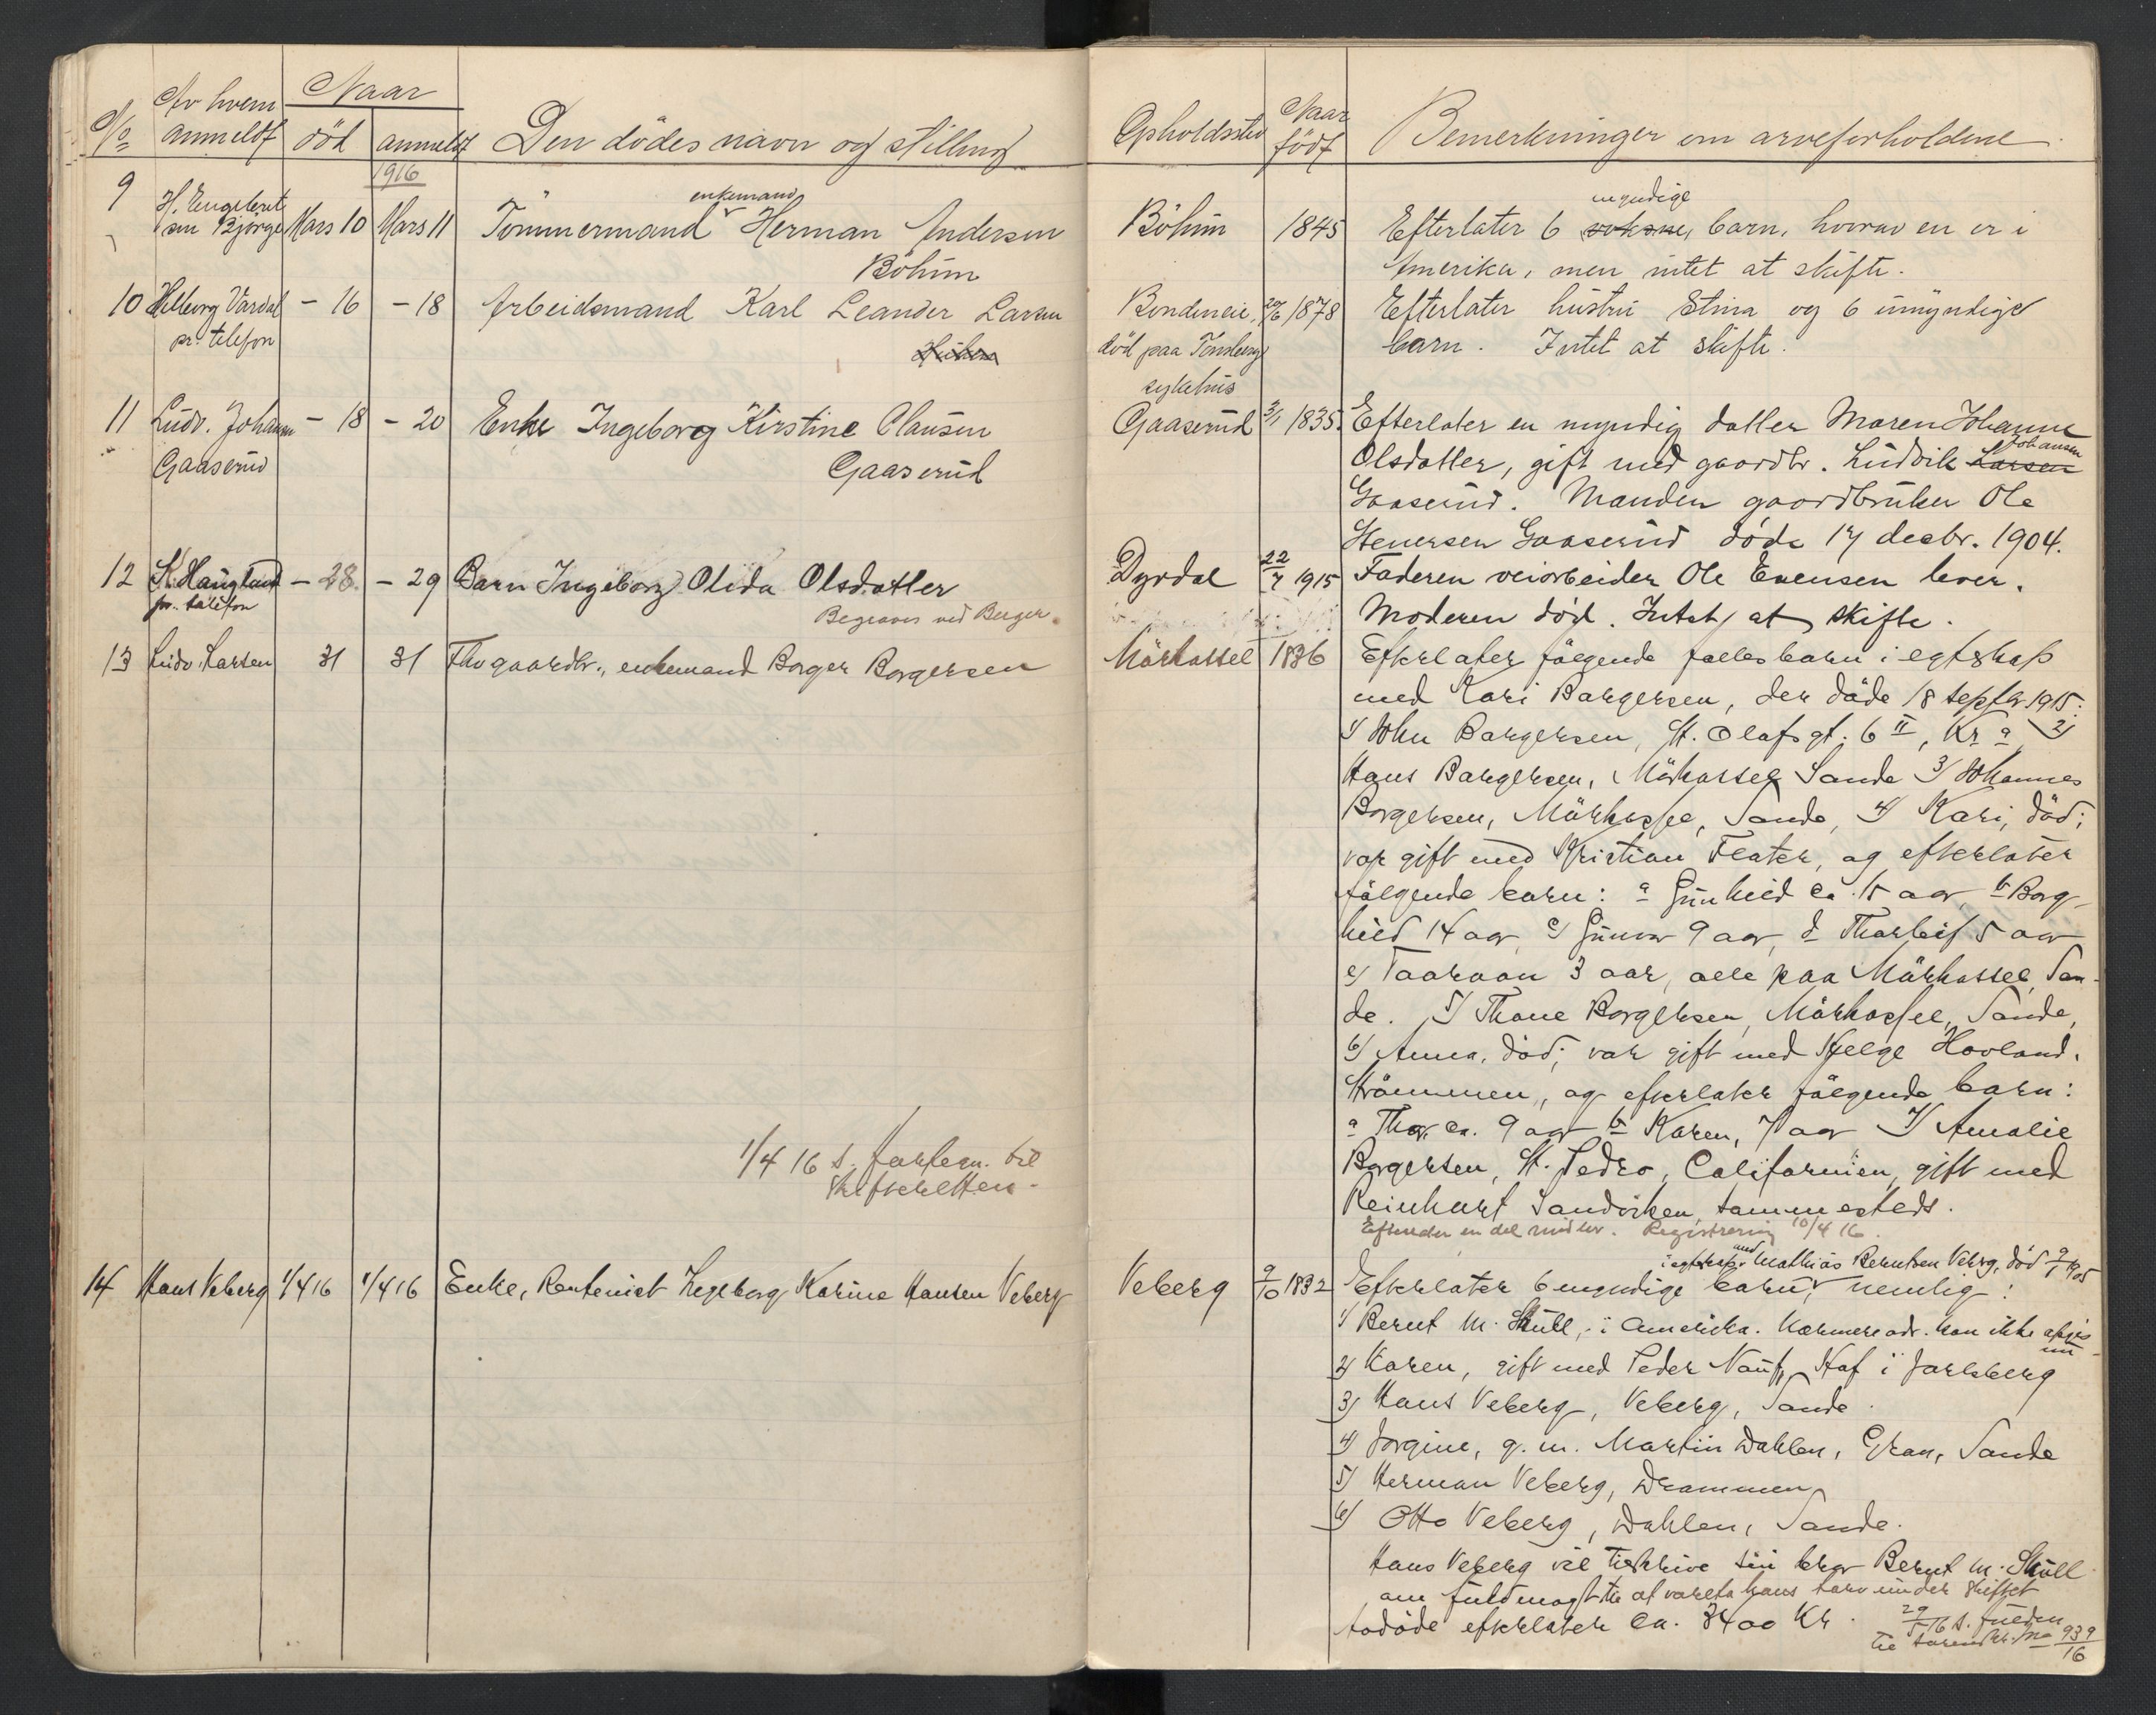 No Av hvem anmeldt Naar død anmeldt Den dödes navn og stilling Opholdssted Naar født Bemerkninger om arveforholdene
1916
9 H. Engebret- Mars 10 Mars 11 Tömmermand enkemand Herman Andersen Böhum 1845 Efterlater 6 voksne myndige barn, hvorav en er i
sen Bjørge Böhum Amerika, men intet at skifte.
10 Helborg Vardal - 16 - 18 Arbeidsmand Karl Leander Larsen Bondeneie, 20/6 1878 Efterlater hustru Stina og 6 umyndige
pr. telefon død paa Tönsberg barn. Intet at skifte.
sykehus
11 Ludv. Johansen - 18 - 20 Enke Ingeborg Kirstine Clausen Gaaserud 3/1 1835. Efterlater en myndig datter Maren Johanne
Gaaserud Gaaserud Olsdatter, gift med gaardbr. Ludvik Larsen Johansen
Gaaserud. Manden gaardbruker Ole
Stenersen Gaaserud döde 17 decbr. 1904.
12 K. Hauglund - 28. - 29 Barn Ingeborg Olida Olsdatter Dyrdal 22/7 1915 Faderen veiarbeider Ole Evensen lever.
pr. telefon Begraves ved Berger. Moderen død. Intet at skifte.
13 Ludv. Larsen 31 31 Fhv gaardbr., enkemand Borger Borgersen Mörkassel 1836 Efterlater følgende fællesbarn i egtskap
med Kari Borgersen, der døde 18 septbr. 1915:
1) John Borgersen, St. Olafsgt. 6 II, Kr.a 2)
Hans Borgersen, Mörkassel Sande 3) Johannes
Borgersen, Mörkassel, Sande, 4) Kari, død;
var gift med Kristian Flater, og efterlater
følgende barn: a Gunhild ca. 15 aar b Borg-
hild 14 aar c) Gunvor 9 aar, d Thorleif 5 aar
e) Taaraan 3 aar, alle paa Mörkassel, San-
de. 5) Thone Borgersen, Mörkassel, Sande,
6) Anna, død; var gift med Helge Hovland.
Strömmen, og efterlater følgende barn:
a Thor ca. 9 aar b Karen, 7 aar 7) Amalie
1/4 16 s. fortegn. til Borgersen, St. Pedro, Californien, gift med
skifteretten. Reinhart Sandviken sammesteds.
Efterlader en del midler. Registrering 10/4 16.
i egteskap med Mathias Berntsen Veberg, død 9/1 1905
14 Hans Veberg 1/4 16 1/4 16 Enke, Rentenist Ingeborg Karine Hansen Veberg Veberg 9/10 1832 Efterlater 6 myndige barn, nemlig:
1) Bernt M. Skull, i Amerika. Nærmere adr. kan ikke opgis
nu
2) Karen, gift med Peder Nauf, Haf i Jarlsberg
3) Hans Veberg, Veberg, Sande.
4) Jorgine, g. m. Martin Dahlen, Gran, Sande
5) Herman Veberg, Drammen
6) Otto Veberg, Dahlen, Sande.
Hans Veberg vil tilskrive sin bror Bernt M. Skull
om fuldmagt til at vareta hans tarv under skiftet
Avdøde efterlater ca. 3400 Kr.
29/5 16 s. fulden
til sorenskr. No 939/16